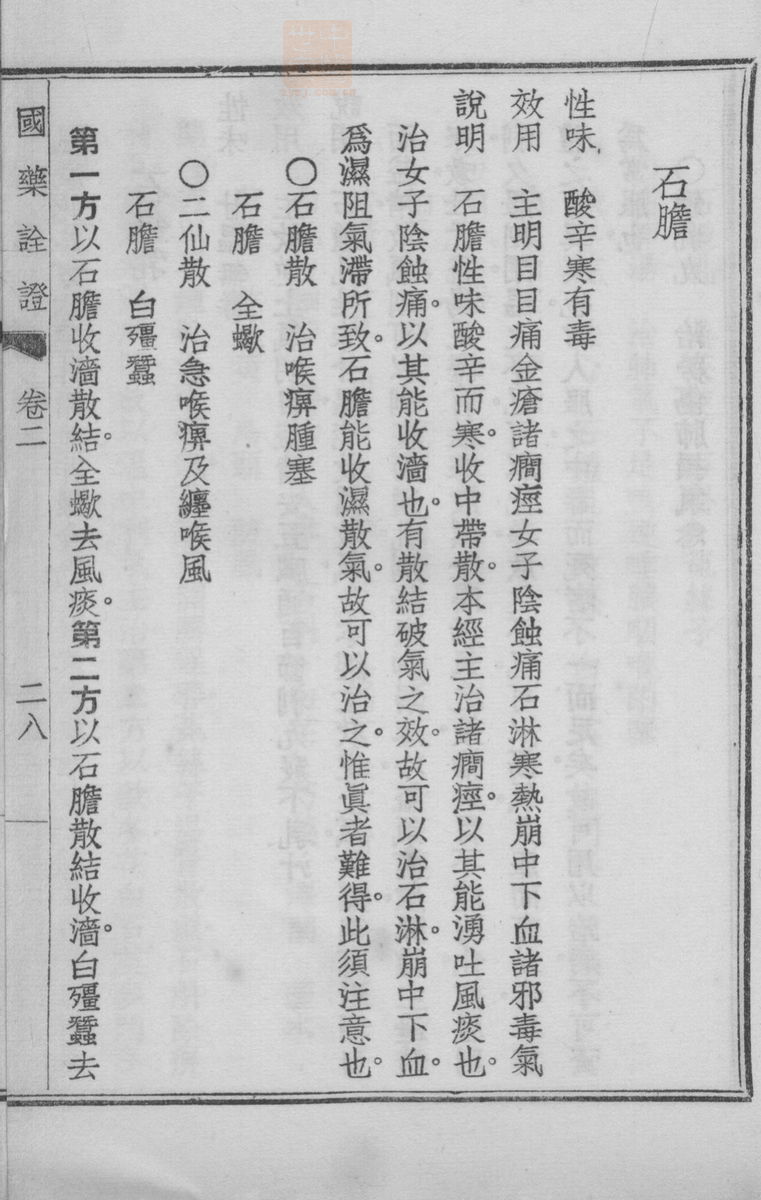 石膽
性味　酸辛寒有毒
效用　主明目目痛金瘡諸癇痙女子陰蝕痛石淋寒熱崩中下血諸邪毒氣
說明　石膽性味酸辛而寒。收中帶散。本經主治諸癇痙。以其能湧吐風痰也。
治女子陰蝕痛。以其能收濇也。有散結破氣之效。故可以治石淋。崩中下血。
爲濕阻氣滯所致。石膽能收濕散氣。故可以治之。惟眞者難得。此須注意也。
〇石膽散　治喉痹腫塞
石膽　全蠍
〇二仙散　治急喉痹及纏喉風
石膽　白殭蠶
第一方以石膽收濇散結。全蠍去風痰。第二方以石膽散結收濇。白殭蠶去
國藥詮證　卷二　二八